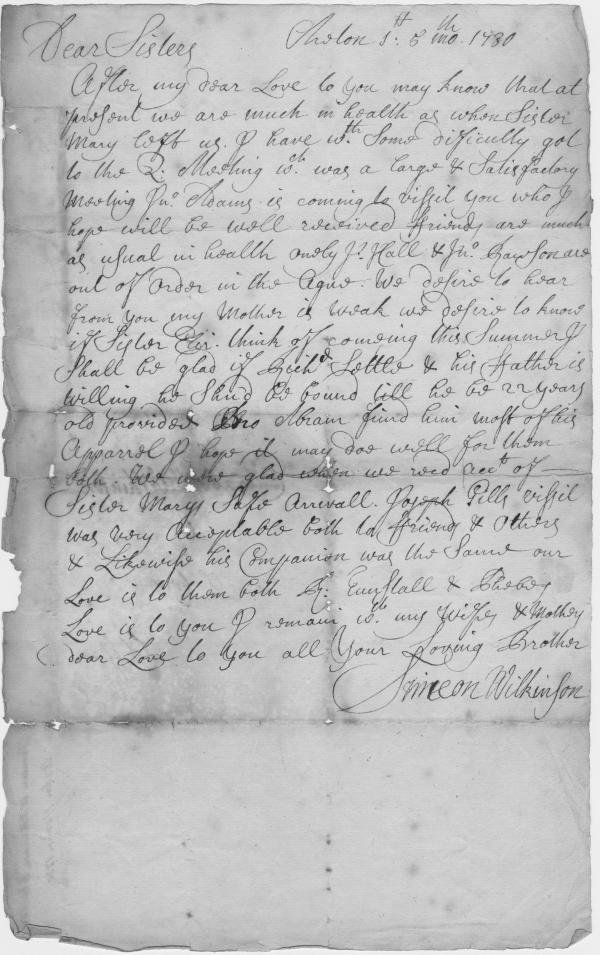 Dear Sisters 5th mo. 1730
After my dear Love to you may know that at
present we are much in health as when Sister
Mary left us. I have wth. Some difficulty got
to the Q. Meeting wch. was a large & Satisfactory
Meeting Jno. Adams is coming to vissit you who I
hope will be well received ffriends are much
as usual in health onely Jo. Hall & Jno. Rawson are
out of Order in the Ague. We desire to hear
from you my Mother is weak we desire to know
if Sister Eliz. think of comeing this Summer I
Shall be glad if Richd. Settle & his ffather is
willing he Shud be bound till he be 22 years
old provided Bro Abram find him most of his
Apparrel I hope it may doe well for them
both. We were glad when we recd acct. of
Sister Marys Safe Arrivall. Joseph Gills vissit
was very Acceptable both to ffriends & Others
& Likewise his Companion was the Same our
Love is to them both R. Tunstall & Phebes
Love is to you I remain wth. my Wifes & Mothers
dear Love to you all Your Loving Brother
Simeon Wilkinson